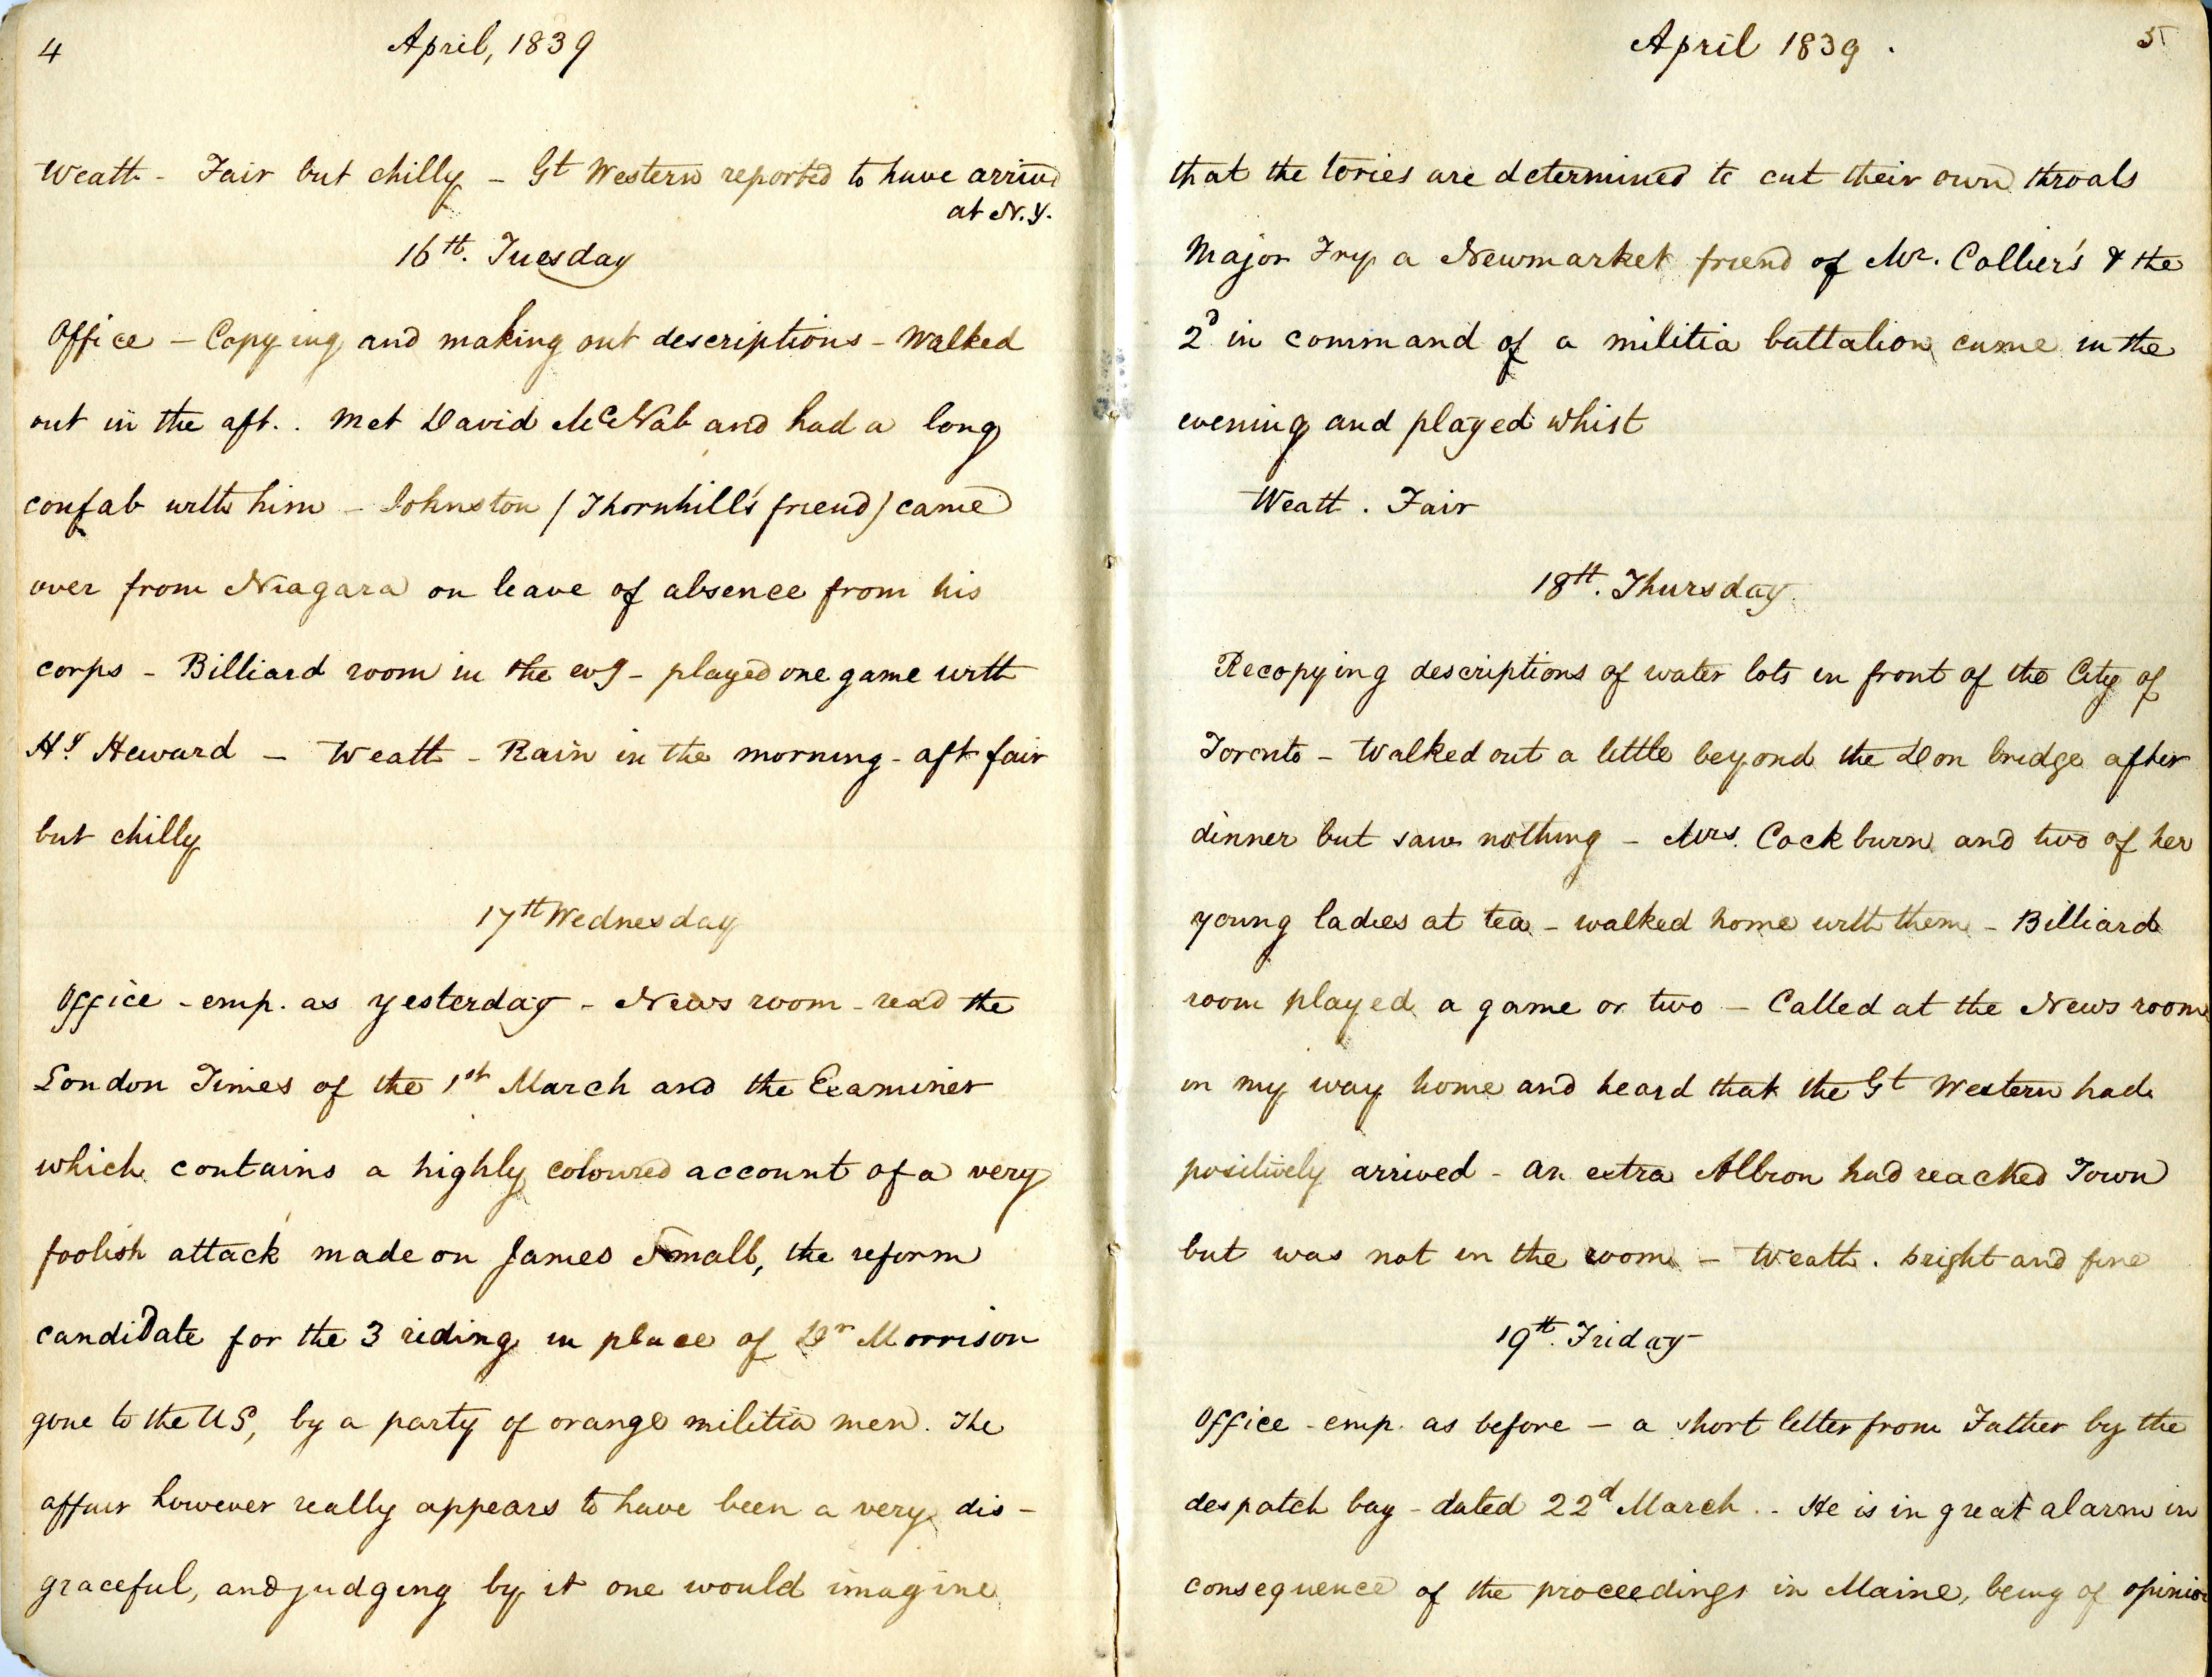 4
April, 1839
Weath - Fair but chilly - Gt Western reported to have arrived
at N.Y.
16th. Tuesday
Office - Copying and making out descriptions - Walked
out in the aft. . Met David McNab and had a long
confab with him - Johnston (Thornhill's friend) came
over from Niagara on leave of absence from his
corps - Billiard room in the evg - played one game with
Hy Heward - Weath - Rain in the morning - aft fair
but chilly
17th Wednesday
Office - emp. as yesterday - News room - read the
London Times of the 1st March and the Examiner
which contains a highly coloured account of a very
foolish attack made on James Small, the reform
candidate for the 3 riding in place of Dr Morrison
gone to the US, by a party of orange militia men. The
affair however really appears to have been a very dis-
graceful, and judging by it one would imagine
April 1839 .
5
that the tories are determined to cut their own throats
Major Fry a Newmarket friend of Mr. Collier's & the
2d in command of a militia battalion came in the
evening and played whist
Weath . Fair
18th. Thursday.
Recopying descriptions of water lots in front of the City of
Toronto - Walked out a little beyond the Don bridge after
dinner but saw nothing - Mrs. Cockburn and two of her
young ladies at tea - walked home with them - Billiard
room played a game or two - Called at the News room
in my way home and heard that the Gt Western had
positively arrived - an extra Albion had reached Town
but was not in the room - Weath . bright and fine
19th. Friday
Office - emp. as before - a short letter from Father by the
despatch bag - dated 22d March . - He is in great alarm in
consequence of the proceedings in Maine, being of opinion